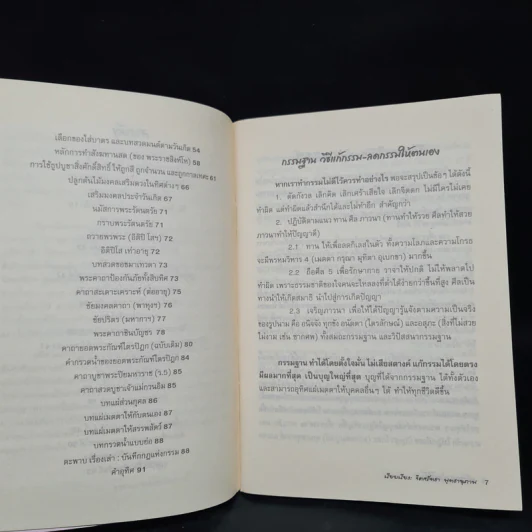 เลือกของใส่บาตร และบทสวดมนต์ตามวันเกิด 54
หลักการทำสังฆทานสด (ของ พระราชสิงห์โห) 58
การใช้ธูปบูชาสิ่งศักดิ์สิทธิ์ ให้ถูกสี ถูกจำนวน และถูกกาลเทศะ 61
ปลูกต้นไม้มงคลเสริมดวงในทิศต่างๆ 66
เสริมมงคลประจำวันเกิด 67
นมัสการพระรัตนตรัย 71
กราบพระรัตนตรัย 71
ถวายพรพระ (อิติปิ โสฯ) 71
อิติปิโส เท่าอายุ 72
บทสวดขอขมาเทวดา 73
พระคาถาป้องกันภัยทั้งสิบทิศ 73
คาถาสะเดาะเคราะห์ (ต่ออายุ) 75
ชัยมงคลคาถา (พาหุงฯ) 76
ชัยปริตร (มหากาฯ) 77
พระคาถาชินบัญชร 78
คาถายอดพระกัณฑ์ไตรปิฎก (ฉบับเดิม) 80
คำกรวดน้ำของยอดพระกัณฑ์ไตรปิฎก 84
คาถาบูชาพระปิยมหาราช (ร.5) 85
คาถาสวดบูชาเจ้าแม่กวนอิม 85
บทแผ่ส่วนกุศล 86
บทแผ่เมตตาให้กับตนเอง 87
บทแผ่เมตตาให้สรรพสัตว์ 87
บทกรวดน้ำแบบย่อ 88
ตะพาบ เรื่องเล่า : บันทึกกฎแห่งกรรม 88
คำอุทิศ 91
กรรมฐาน วิธีแก้กรรม-ลดกรรมให้ตนเอง
หากเราทำกรรมไม่ดีไว้ควรทำอย่างไร พอจะสรุปเป็นข้อๆ ได้ดังนี้
1. ตัดกังวล เลิกคิด เลิกเศร้าเสียใจ เลิกจิตตก ไม่มีใครไม่เคย
ทำผิด แต่ทำผิดแล้วสำนึกได้และไม่ทำอีก สำคัญกว่า
2. ปฏิบัติตามแนว ทาน ศีล ภาวนา (ทานทำให้รวย ศีลทำให้สวย
ภาวนาทำให้ปัญญาดี)
2.1 ทาน ให้เพื่อลดกิเลสในตัว ทั้งความโลภและความโกรธ
จะมีพรหมวิหาร 4 (เมตตา กรุณา มุทิตา อุเบกขา) มากขึ้น
2.2 ถือศีล 5 เพื่อรักษากาย วาจาให้ปกติ ไม่ให้พลาดไป
ทำผิด เพราะธรรมชาติของใจคนจะไหลลงที่ต่ำได้ง่ายกว่าขึ้นที่สูง ศีลเป็น
ทางนำให้เกิดสมาธิ นำไปสู่การเกิดปัญญา
2.3 เจริญภาวนา เพื่อให้ได้ปัญญารู้แจ้งตามความเป็นจริง
ของรูปนาม คือ อนิจจัง ทุกขัง อนัตตา (ไตรลักษณ์) และอสุภะ (สิ่งที่ไม่สวย
ไม่งาม เช่น ซากศพ) ทั้งสมถะกรรมฐาน และวิปัสสนากรรมฐาน
กรรมฐาน ทำได้โดยตั้งใจมั่น ไม่เสียสตางค์ แก้กรรมได้โดยตรง
มีผลมากที่สุด เป็นบุญใหญ่ที่สุด บุญที่ได้จากกรรมฐาน ได้ทั้งตัวเอง
และสามารถอุทิศแผ่เมตตาให้บุคคลอื่นๆ ได้ ทำให้ทุกชีวิตดีขึ้น
เรียบเรียง 7